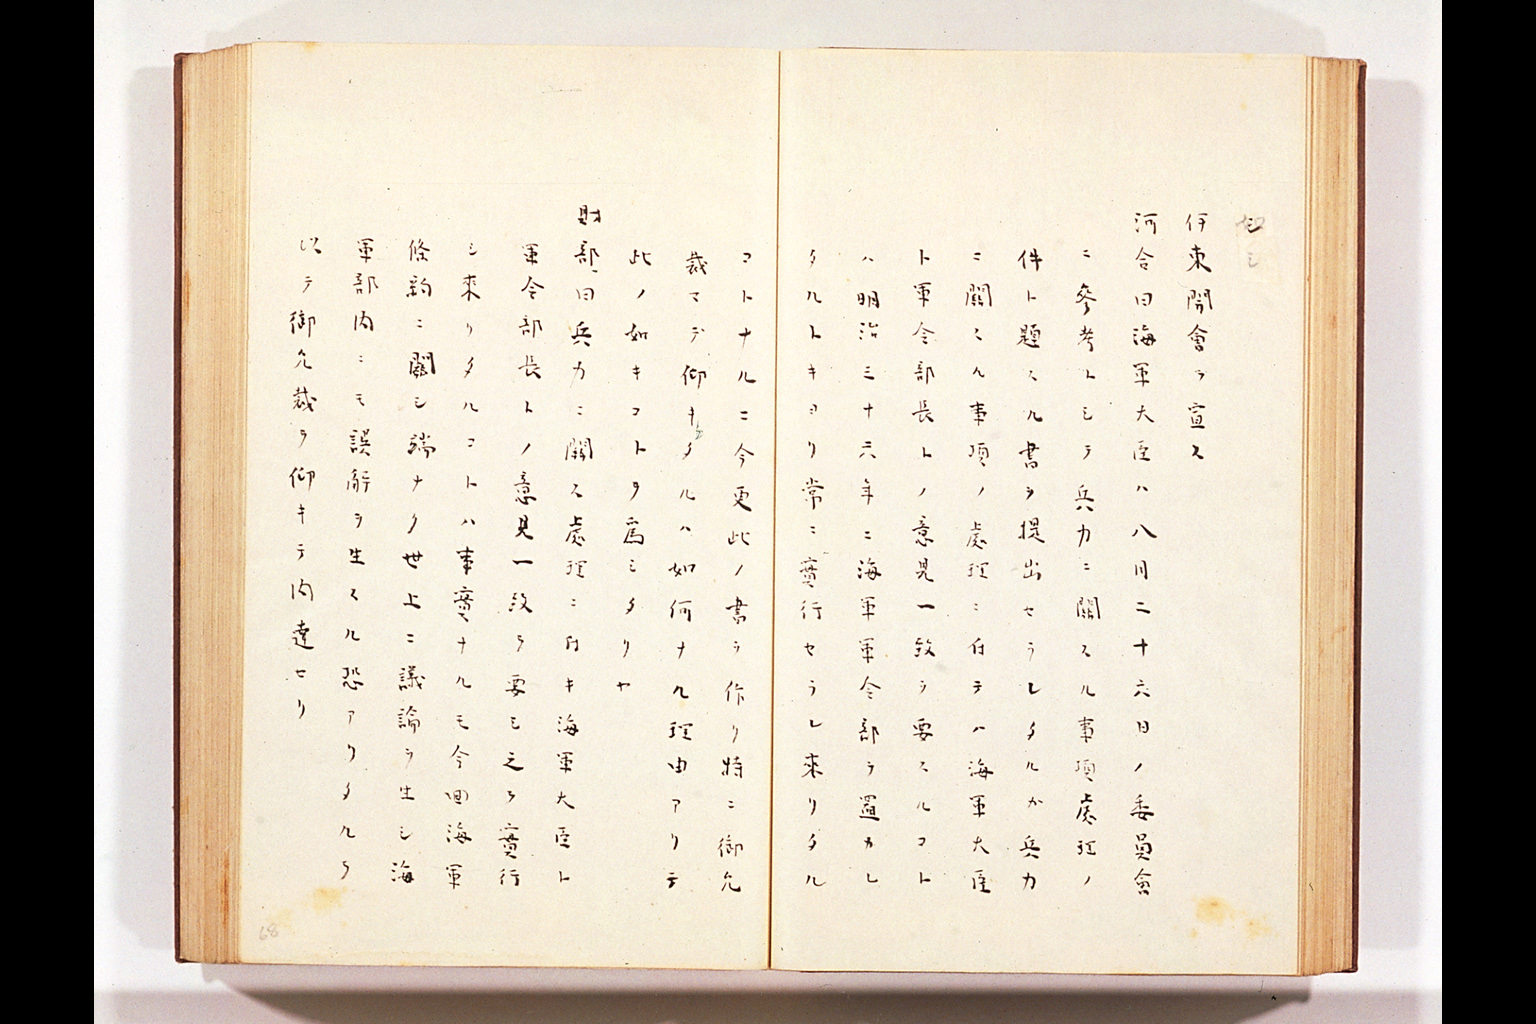 如シ
伊東開會ヲ宣ス
河合曰海軍大臣ハ八月二十六日ノ委員會
ニ參考トシテ兵力ニ關スル事項處理ノ
件ト題スル書ヲ提出セラレタルカ兵力
ニ關スル事項ノ處理ニ付テハ海軍大臣
ト軍令部長トノ意見一致ヲ要スルコト
ハ明治三十六年ニ海軍軍令部ヲ置カレ
タルトキヨリ常ニ實行セラレ來リタル
コトナルニ今更此ノ書ヲ作リ特ニ御允
裁マデ仰キタルハ如何ナル理由アリテ
此ノ如キコトヲ爲シタリヤ
財部曰兵力ニ關ス處理ニ付キ海軍大臣ト
軍令部長トノ意見一致ヲ要シ之ヲ實行
シ來リタルコトハ事實ナルモ今回海軍
條約ニ關シ端ナク世上ニ議論ヲ生シ海
軍部内ニモ誤解ヲ生スル恐アリタルヲ
以テ御允裁ヲ仰キテ内達セリ
68